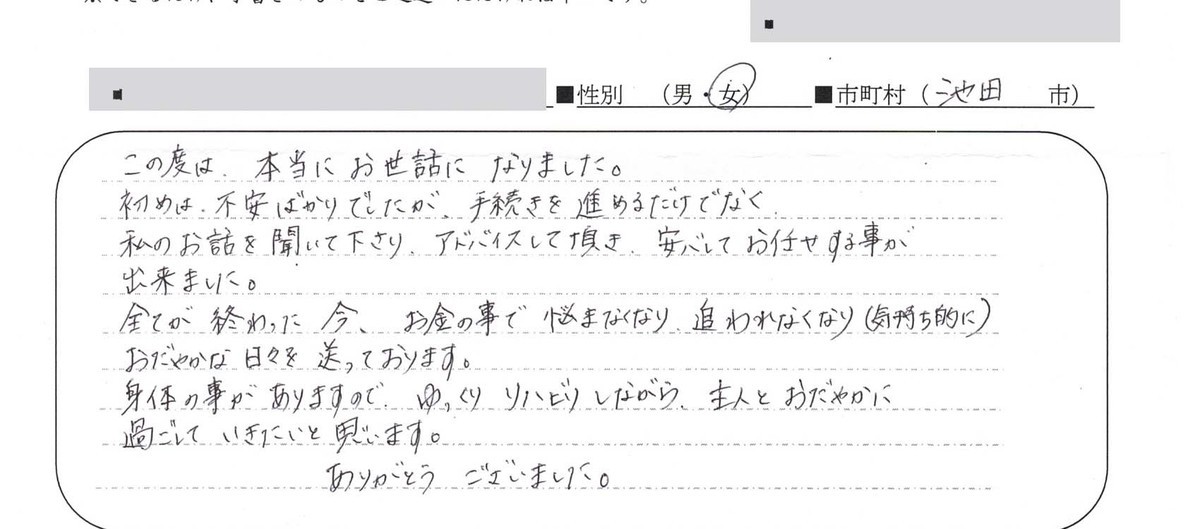 ■性別 (男・女) ■市町村 (池田 市)
この度は、本当にお世話になりました。
初めは、不安ばかりでしたが、手続きを進めるだけでなく、
私のお話を聞いて下さり、アドバイスして頂き、安心してお任せする事が
出来ました。
全てが終わった今、お金の事で悩まなくなり、追われなくなり(気持ち的に)
おだやかな日々を送っております。
身体の事がありますので、ゆっくりリハビリしながら、主人とおだやかに
過ごしていきたいと思います。
ありがとうございました。